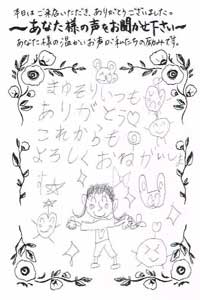 本日はご来店いただき、ありがとうございました。
〜あなた様の声をお聞かせ下さい〜
あなた様の温かいお声が私たちの励みです。
きゅそりいつも
ありがとう♡
これからも
よろしくおねがいしま